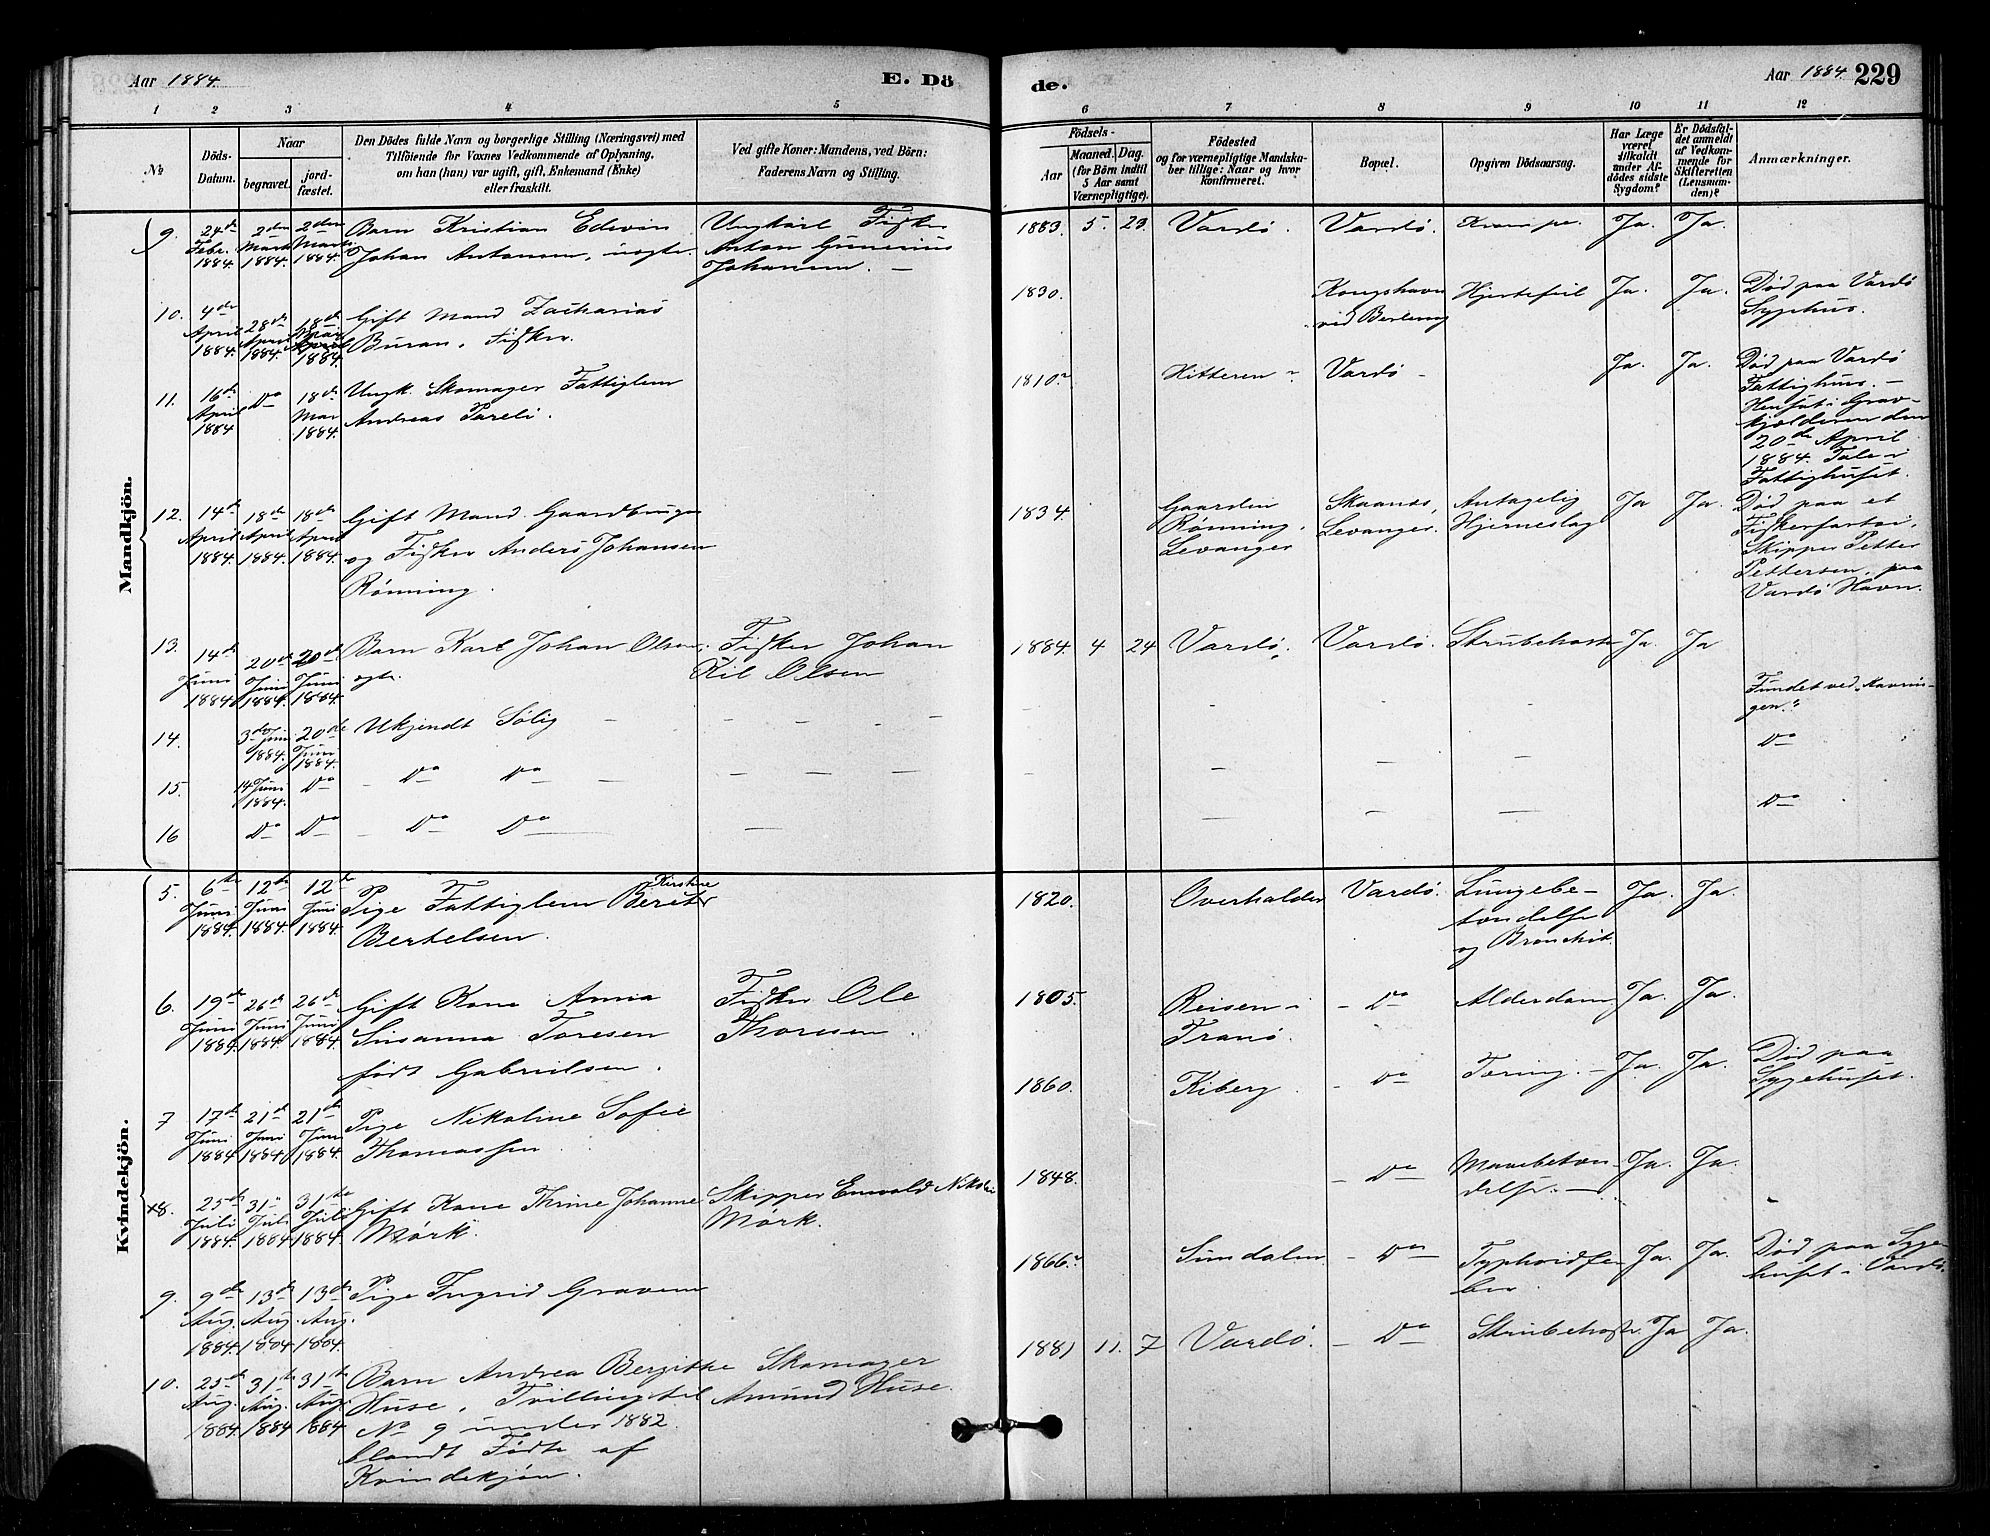 Aar 1884.
E. Dö
de.
Aar 1884. 229
1 2 3 4 5 6 7 8 9 10 11 12
No
Döds-Datum.
Naar
begravet.
jord-fæstet.
Den Dödes fulde Navn og borgerlige Stilling (Næringsvei) med
Tilföiende for Voxnes Vedkommende af Oplysning,
om han (hun) var ugift, gift, Enkemand (Enke)
eller fraskilt.
Ved gifte Koner: Mandens, ved Börn:
Faderens Navn og Stilling.
Födsels-
Aar
Maaned. Dag.
(for Börn indtil
5 Aar samt
Værnepligtige).
Födested
og for værnepligtige Mandska-
ber tillige: Naar og hvor
konfirmeret.
Bopæl.
Opgiven Dödsaarsag.
Har Læge
været
tilkaldt
under Af-
dödes sidste
Sygdom?
Er Dödsfal-
det anmeldt
af Vedkom-
mende for
Skifteretten
(Lensman-
den)?
Anmærkninger.
Mandkjön.
9. 24de Febr. 1884. 2den Marts 1884. 2den Marts 1884. Barn Kristian Edevin Ungkarl Fisker 1883. 5. 23. Vardö. Vardö. Krampe. Ja. Ja.
Johan Antonsen, uægte. Anton Gunerius
Johansen. —
10. 4de April 1884. 28de April 1884. 18de Mai 1884. Gift Mand Zacharias 1830. Kongshavn Hjertefeil Ja. Ja. Död paa Vardö
Buran, Fisker. ved Berlevaag Syghus.
11. 16de April 1884 Do 18de Mai 1884. Ungk. Skomager Fattiglem 1810? Hitteren? Vardö — Ja. Ja. Död paa Vardö
Andreas Pareli. Fattighus. —
Hensat i Grav-
kjælderen den
20de April
1884. Tale i
Fattighuset.
12. 14de April 1884. 18de April 1884. 18de April 1884. Gift Mand. Gaardbruger 1834. Gaarden Skaanes, Antagelig Ja Ja. Död paa et
og Fisker Anders Johansen Rönning, Levanger. Hjerneslag Fiskerfartöi,
Rönning. Levanger Skipper Petter
Pettersen, paa
Vardö Havn.
13. 14de Juni 1884 20de Juni 1884. 20de Juni 1884. Barn Karl Johan Olsen, Fisker Johan 1884. 4 24 Vardö. Vardö. Strubehoste Ja. Ja
ægte. Kil Olsen
14. 3de Juni 1884. 20de Juni 1884. Ukjendt Sölig — — — — Fundet ved "Kavrin-
gen."
15. 14 Juni 1884. Do — Do Do — — — — — — Do
16 Do Do — Do Do — — — — Do
Kvindekjön.
5. 6te Juni 1884. 12te Juni 1884. 12te Juni 1884. Pige Fattiglem Berit Kirstine 1820. Overhalden Vardö. Lungebe- Ja. Ja.
Bertelsen. tændelse
og Bronchit.
6. 19de Juni 1884. 26de Juni 1884. 26de Juni 1884. Gift Kone Anna Fisker Ole 1805. Reisen i — Do Alderdom Ja. Ja.
Susanna Toresen Thoresen. Tranö.
född Gabrielsen.
7 17de Juni 1884 21de Juni 1884 21de Juni 1884. Pige Nikoline Sofie 1860. Kiberg — Do Tæring. — Ja. Ja. Död paa
Thomassen Sygehuset.
×8. 25de Juli 1884. 31te Juli 1884 31te Juli 1884. Gift Kone Thrine Johanne Skipper Enevald Nikolai 1848. — Do Mavebetæn- Ja. Ja.
Mörk. Mörk. delse. —
9. 9de Aug. 1884. 13de Aug. 1884. 13de Aug. 1884. Pige Ingrid Gravem 1866? Sundalen — Do Typhoidfe- Ja. Ja. Död paa Syge-
ber huset i Vardö.
10. 25de Aug. 1884. 31te Aug. 1884 31te Aug. 1884 Barn Andrea Bergithe Skomager 1881 11. 7 Vardö. — Do Strubehoste Ja Ja.
Huse, Tvilling til Amund Huse.
No 9 under 1882
blandt Födte af
Kvindekjön.